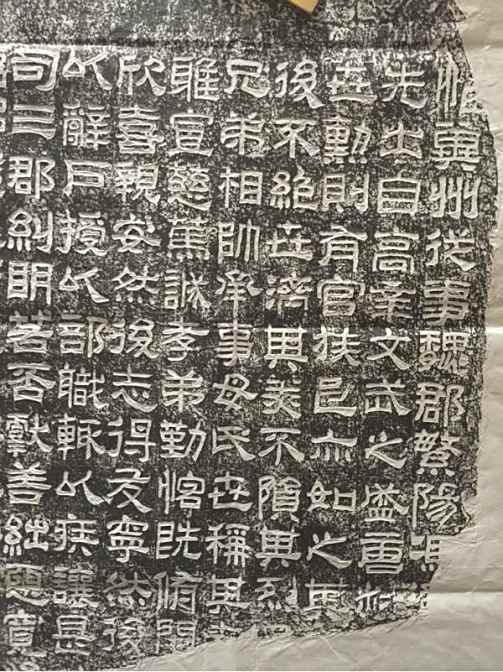 惟冀州從事魏郡繁陽馮
先出自高辛文武之盛
世勳則有官族邑亦如之其
後不絕世濟其美不隕其烈
兄弟相帥承事母氏世稱其
雖宣慈篤誠孝弟勤恪既俯
欣喜親安然後志得友寧然後
以辭戶授以部職輒以疾讓是
司三郡糾明若否獻善絀惡寬